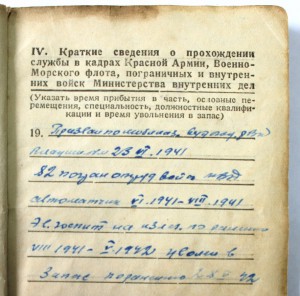 IV. Краткие сведения о прохождении
службы в кадрах Красной Армии, Военно-
Морского флота, пограничных и внутрен-
них войск Министерства внутренних дел
(Указать время прибытия в часть, основные пе-
ремещения, специальность, должностные квалифи-
кации и время увольнения в запас)
19. Призван по мобилиз.
23 VI. 1941
82 погран отряд войск НКВД
автоматчик VI. 1941 - VIII. 1941
Эв. госпит на излеч. по ранению
VIII 1941 - V. 1942 уволен в
запас по ранению 42